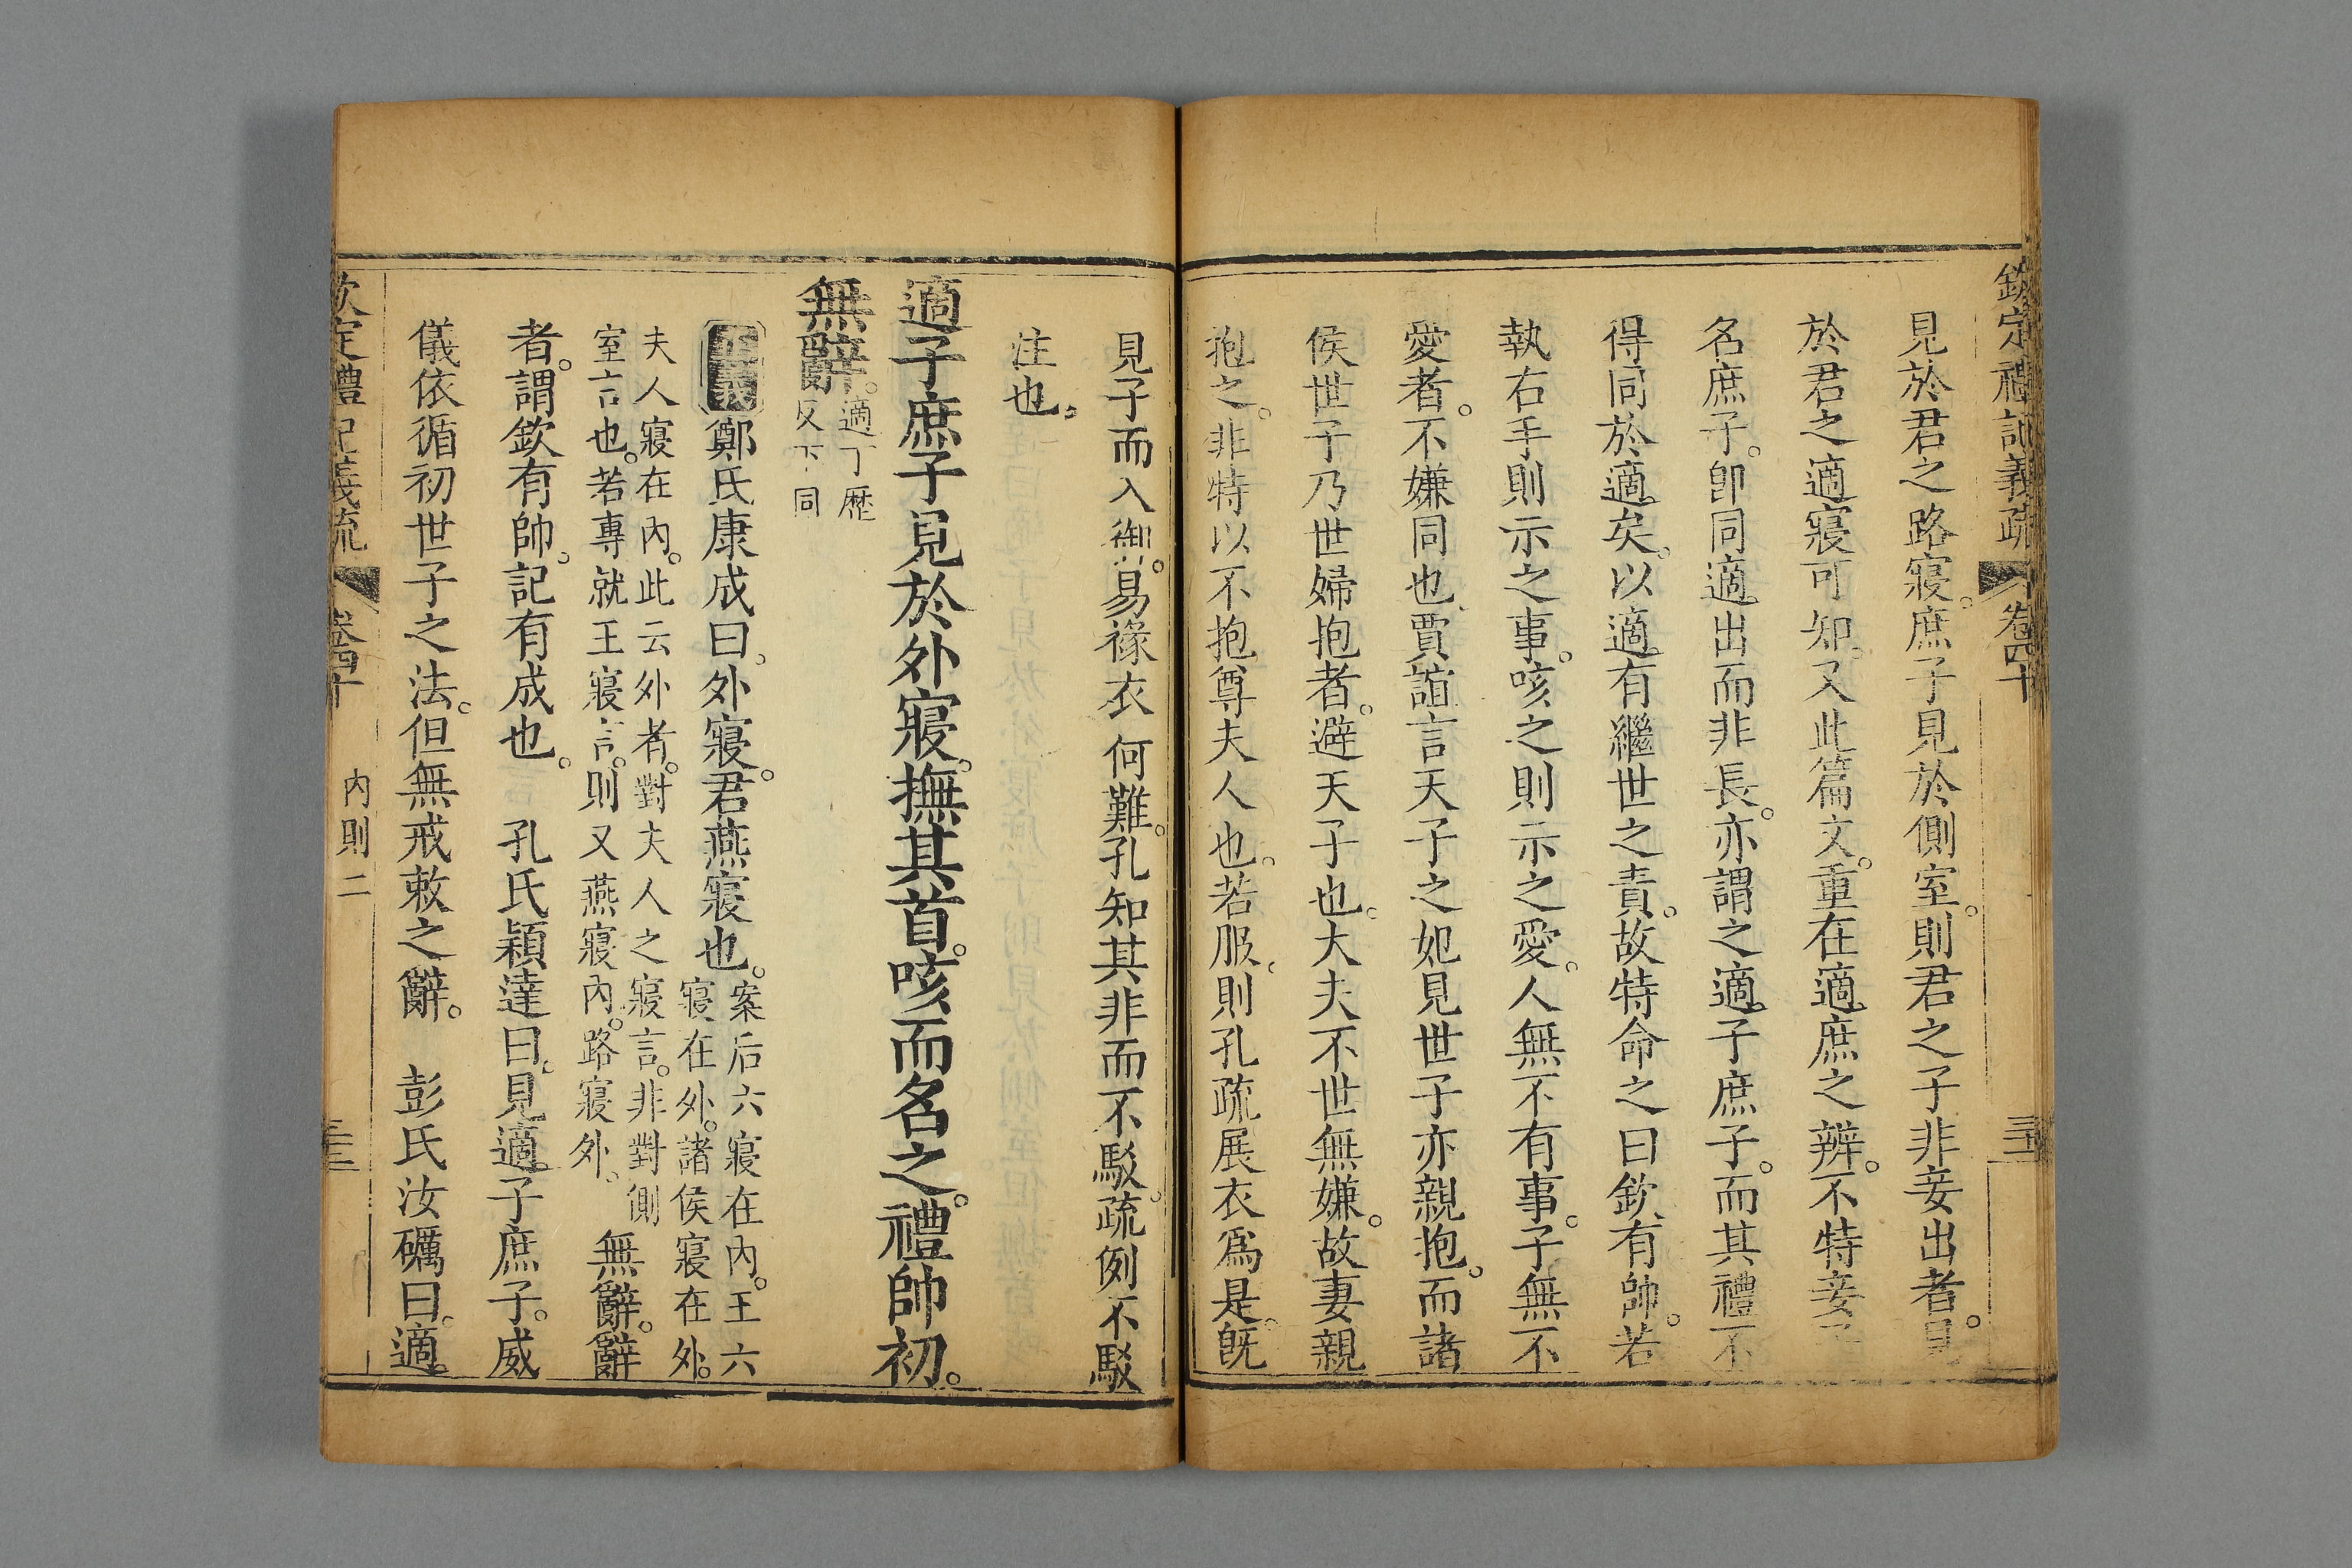 欽定禮記義疏 卷四十
見於君之路寢。庶子見於側室。則君之子非妾出者。見
於君之適寢可知。又此篇文。重在適庶之辨。不特妾子
名庶子。卽同適出而非長。亦謂之適子庶子。而其禮不
得同於適矣。以適有繼世之責。故特命之曰欽有帥。若
執右手則示之事。咳之則示之愛。人無不有事。子無不
愛者。不嫌同也。賈誼言天子之妃見世子亦親抱。而諸
侯世子乃世婦抱者。避天子也。大夫不世無嫌。故妻親
抱之。非特以不抱尊夫人也。若服。則孔疏展衣爲是。旣
見子而入御。易褖衣何難。孔知其非而不駁。疏例不駁
注也。
適子庶子見於外寢。撫其首。咳而名之。禮帥初。
無辭。適丁歷反下同
正義 鄭氏康成曰。外寢。君燕寢也。案后六寢在內。王六寢在外。諸侯寢在外。
夫人寢在內。此云外者。對夫人之寢言。非對側室言也。若專就王寢言。則又燕寢內。路寢外。無辭。辭
者。謂欽有帥。記有成也。 孔氏穎達曰。見適子庶子。威
儀依循初世子之法。但無戒敕之辭。 彭氏汝礪曰。適
欽定禮記義疏 卷四十 內則二